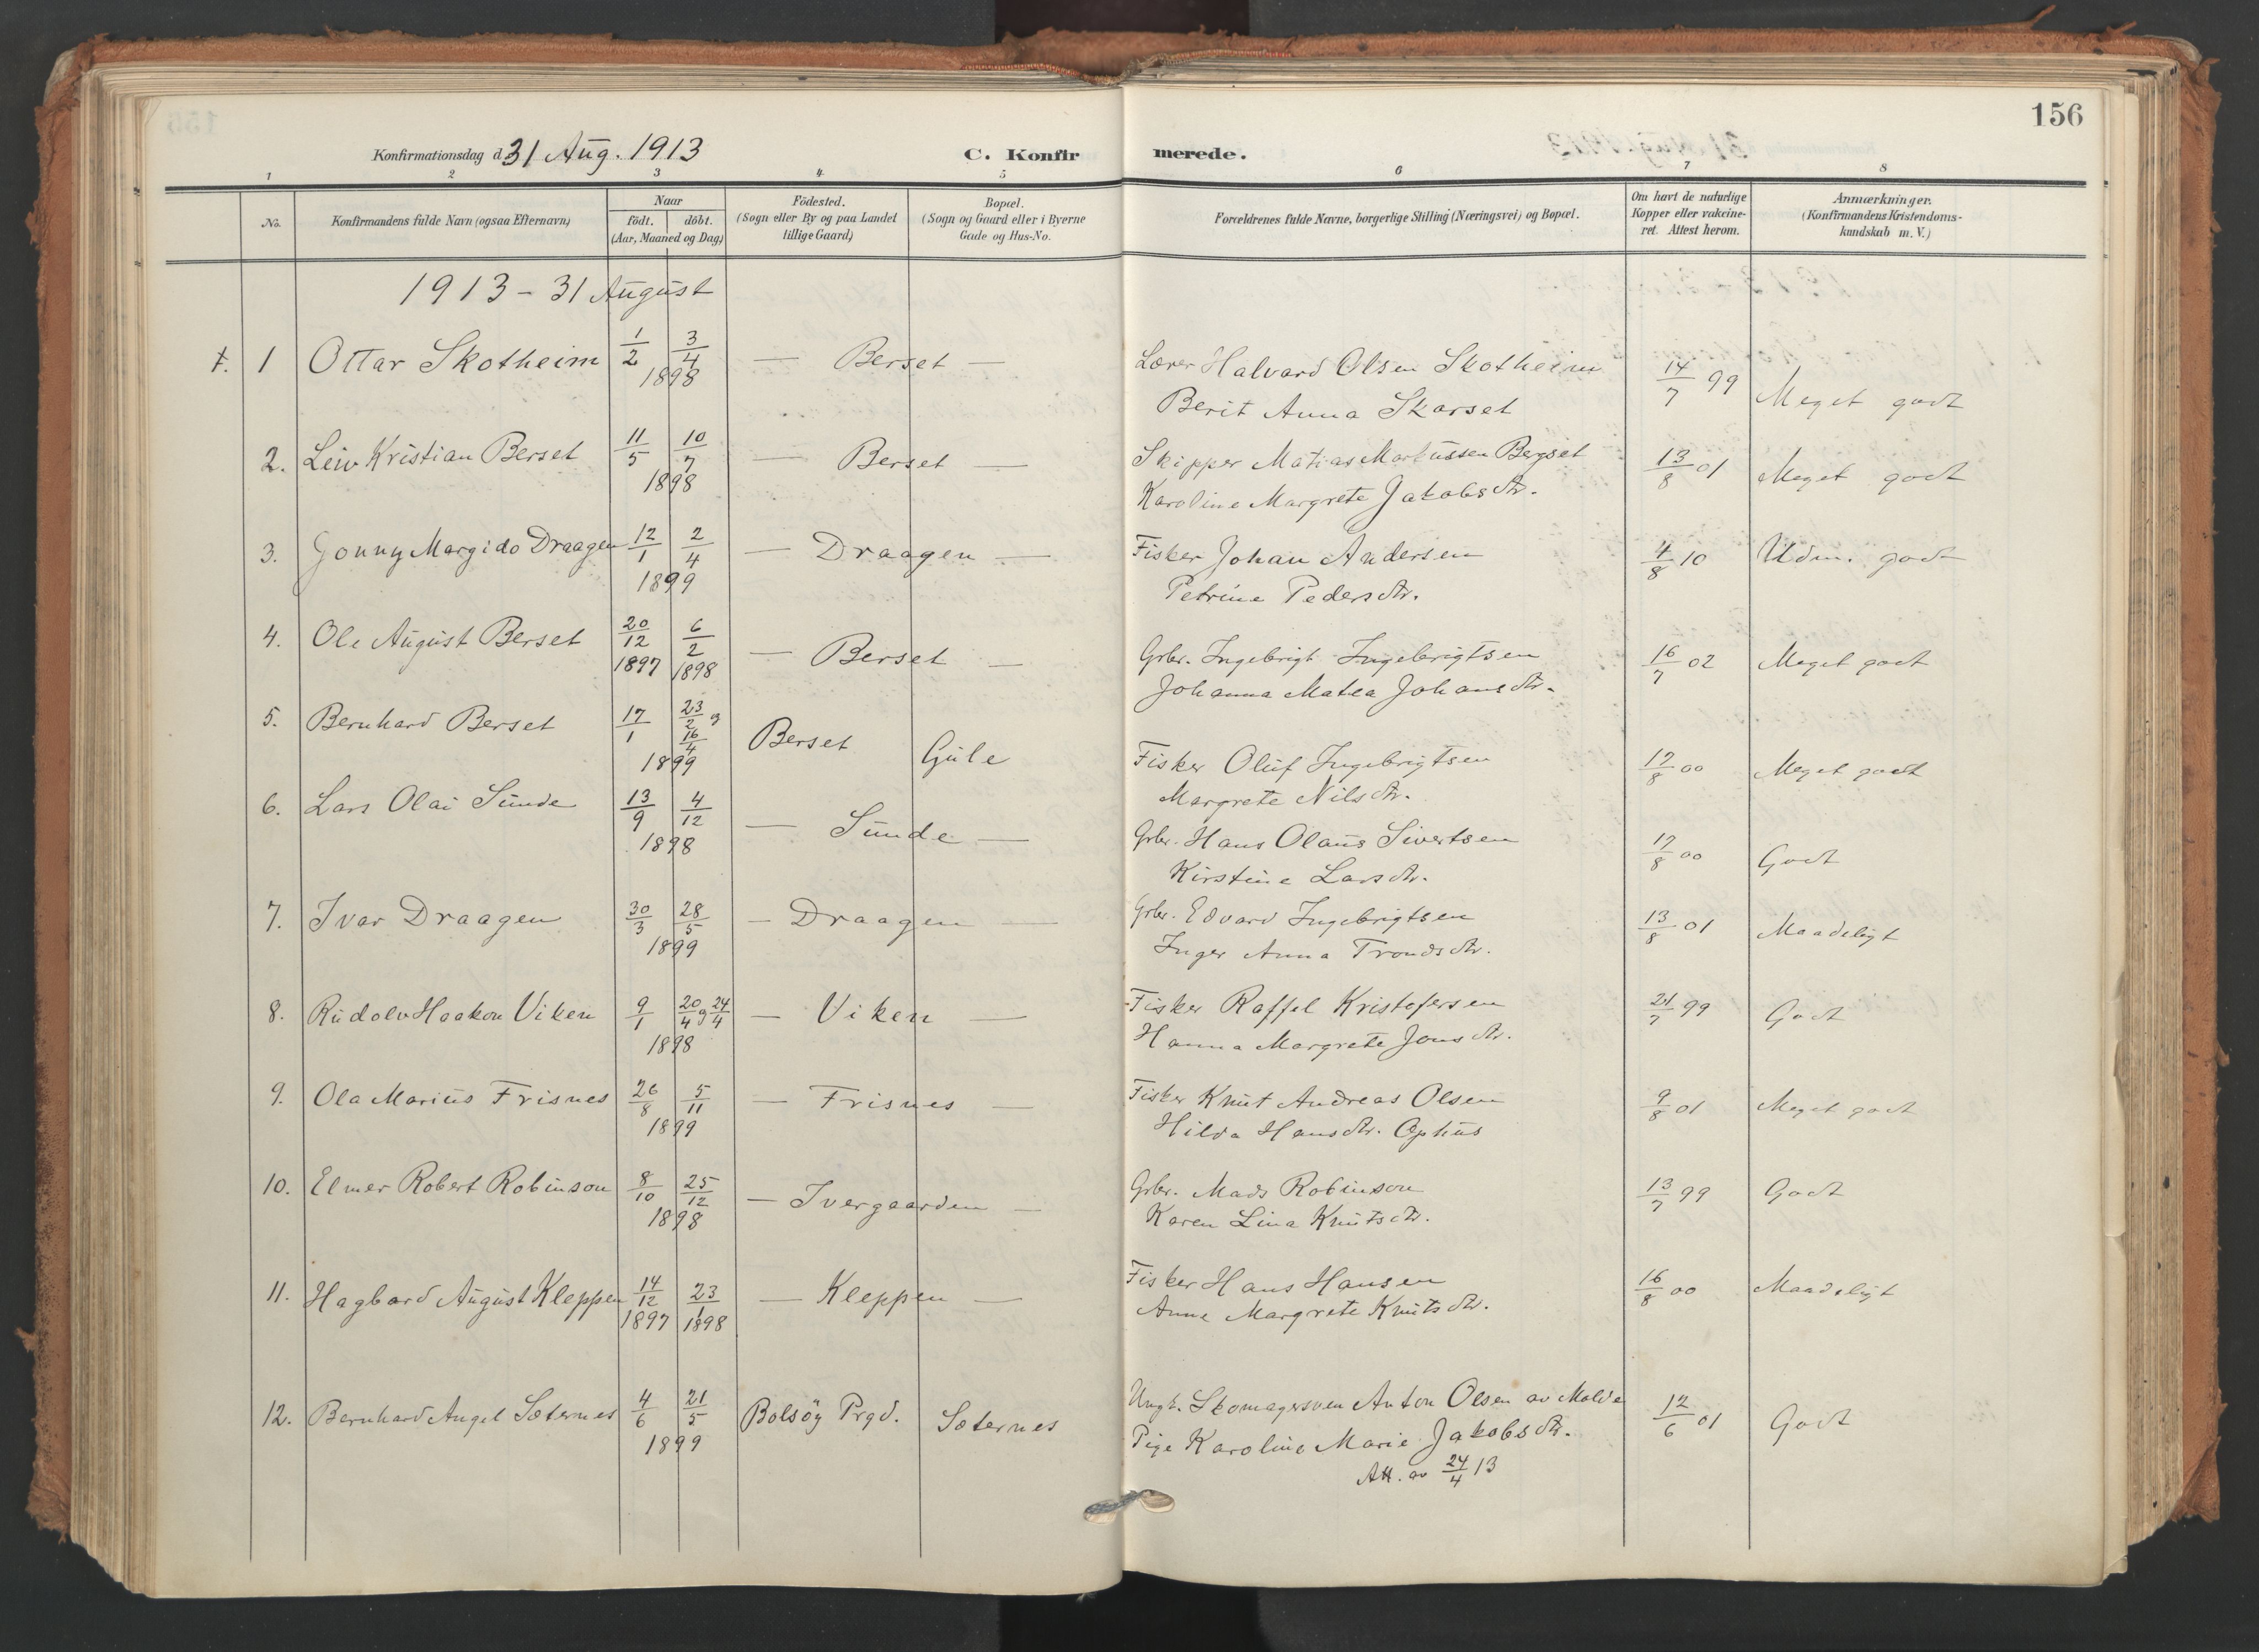 156
Konfirmationsdag d. 31 Aug. 1913 C. Konfir merede.
1 2 3 4 5 6 7 8
No. Konfirmandens fulde Navn (ogsaa Efternavn) Naar födt. döbt. (Aar, Maaned og Dag) Födested. (Sogn eller By og paa Landet tillige Gaard) Bopæl. (Sogn og Gaard eller i Byerne Gade og Hus-No. Forældrenes fulde Navne, borgerlige Stilling (Næringsvei) og Bopæl. Om havt de naturlige Kopper eller vakcineret. Attest herom. Anmærkninger. (Konfirmandens Kristendomskundskab m. V.)
1913 - 31 August
1 Ottar Skotheim 1/2 3/4 1898 — Berset — Lærer Halvard Olsen Skotheim 14/7 99 Meget godt
Berit Anna Skarset
2. Leiv Kristian Berset 11/5 10/7 1898 — Berset — Skipper Matias Markussen Bergset 13/8 01 Meget godt
Karoline Margrete Jakobsdtr.
3. Gonny Margido Draagen 12/1 2/4 1899 — Draagen — Fisker Johan Andersen 4/8 10 Udm. godt
Petrine Pedersdtr.
4. Ole August Berset 20/12 1897 6/2 1898 — Berset — Grbr. Ingebrigt Ingebrigtsen 16/7 02 Meget godt
Johanna Matea Johansdtr.
5. Bernhard Berset 17/1 23/2 og 16/4 1899 Berset Gule Fisker Oluf Ingebrigtsen 17/8 00 Meget godt
Margrete Nilsdtr.
6. Lars Olai Sunde 13/9 4/12 1898 — Sunde — Grbr. Hans Olaus Sivertsen 17/8 00 Godt
Kirstine Larsdtr.
7. Ivar Draagen 30/3 28/5 1899 — Draagen — Grbr. Edvard Ingebrigtsen 13/8 01 Maadeligt
Inger Anna Trondsdtr.
8. Rudolv Haakon Viken 9/1 20/4 og 24/4 1898 — Viken — Fisker Raffel Kristofersen 21/7 99 Godt
Hanna Margrete Jonsdtr.
9. Ola Marius Frisnes 26/8 5/11 1899 — Frisnes — Fisker Knut Andreas Olsen 9/8 01 Meget godt
Hilda Hansdtr. Ophus
10. Elmer Robert Robinson 8/10 25/12 1898 — Ivergaarden — Grbr. Mads Robinson 13/7 99 Godt
Karen Lina Knutsdtr.
11. Hagbard August Kleppen 14/12 1897 23/1 1898 — Kleppen — Fisker Hans Hansen 16/8 00 Maadeligt
Anne Margrete Knutsdtr.
12. Bernhard Angel Sæternes 4/6 21/5 1899 Bolsöy Prgd. Sæternes Ungk. Skomagersven Anton Olsen av Molde 12/6 01 Godt
Pige Karoline Marie Jakobsdtr.
Att. av 24/4 13